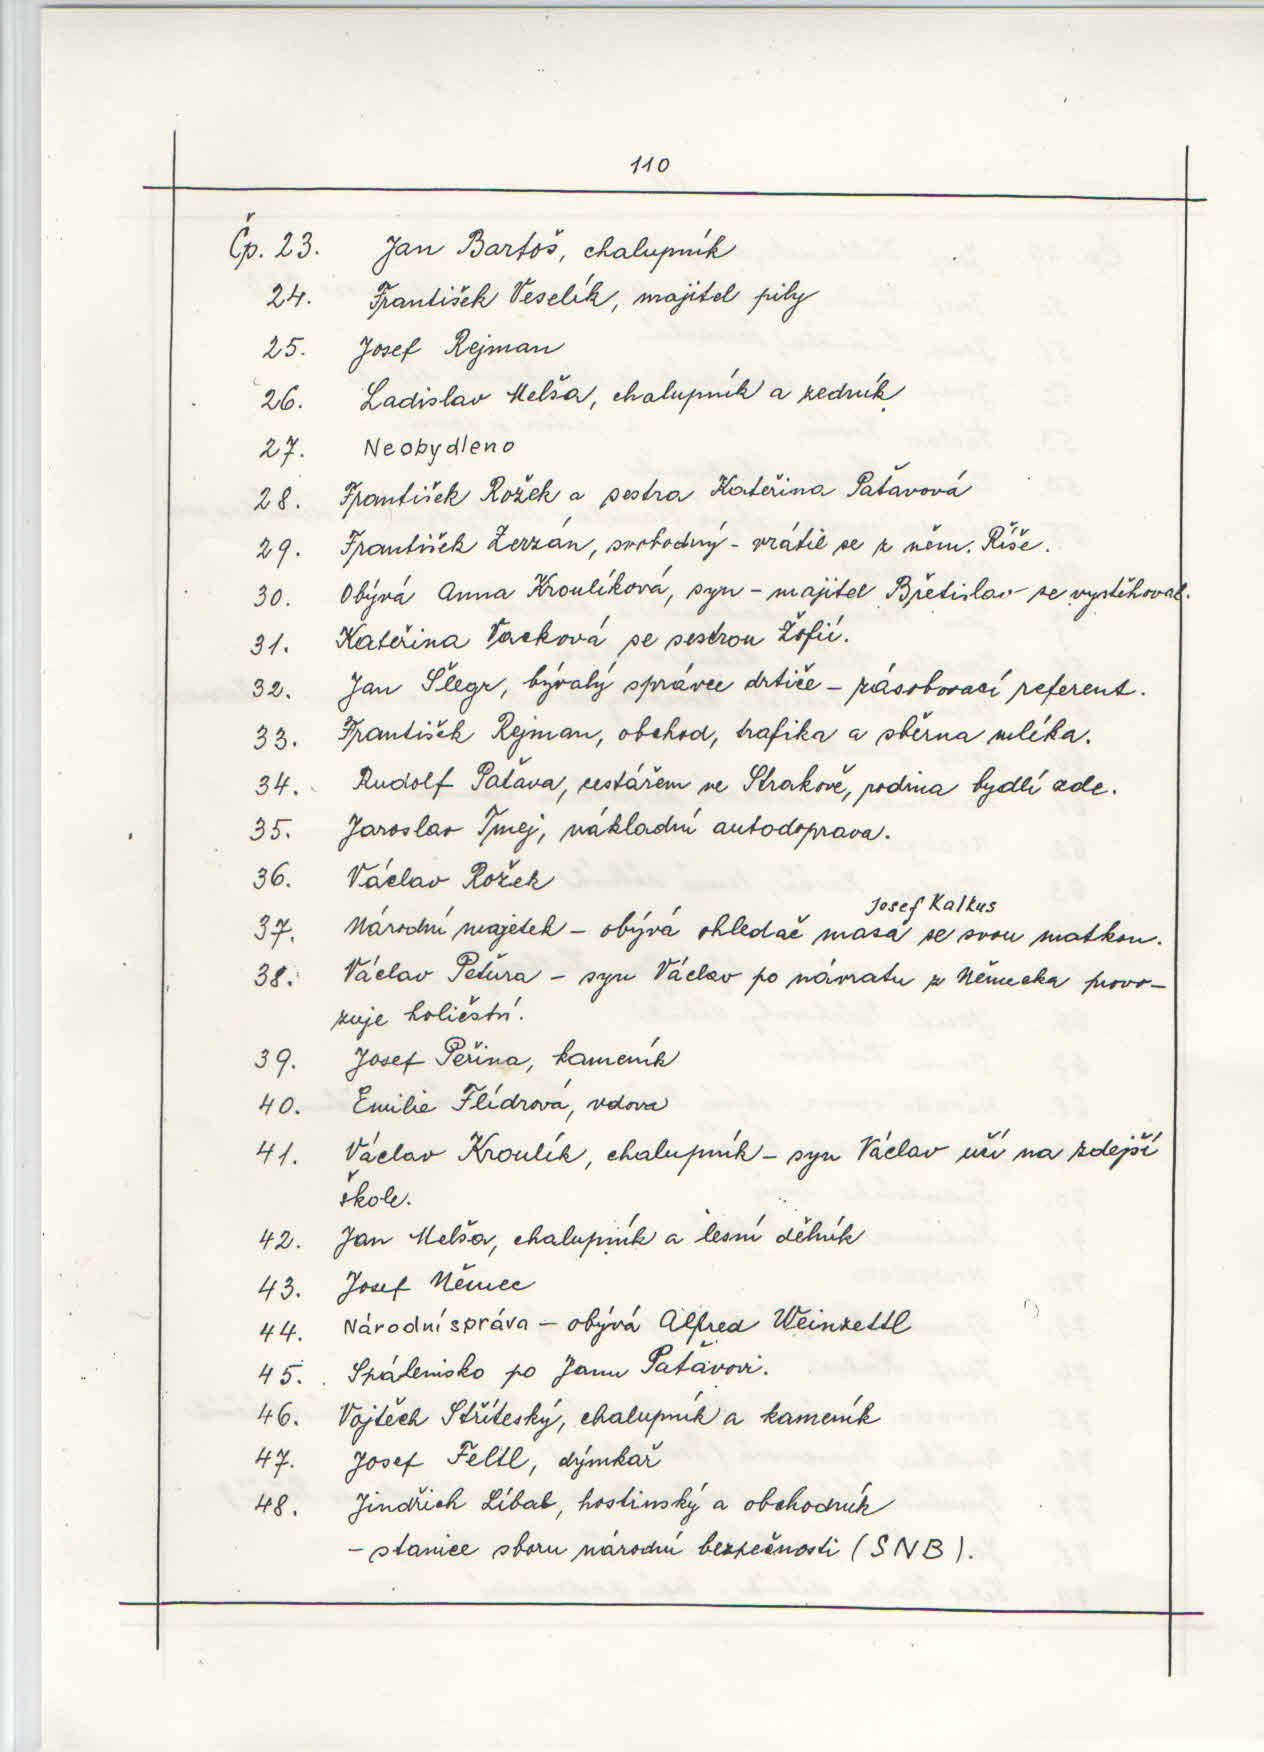 110
Čp. 23. Jan Bartoš, chalupník
24. František Veselík, majitel pily
25. Josef Rejman
26. Ladislav Melša, chalupník a zedník
27. Neobydleno
28. František Rožek a sestra Kateřina Paťavová
29. František Zerzán, svobodný - vrátil se z něm. Říše.
30. Obývá Anna Kroulíková, syn - majitel Břetislav se vystěhoval.
31. Kateřina Vacková se sestrou Žofií.
32. Jan Šlegr, bývalý správce drtiče - zásobovací referent.
33. František Rejman, obchod, trafika a sběrna mléka.
34. Rudolf Paťava, cestářem ve Strakově, rodina bydlí zde.
35. Jaroslav Tmej, nákladní autodoprava.
36. Václav Rožek
Josef Kalkus
37. Národní majetek - obývá ohledač masa se svou matkou.
38. Václav Petira - syn Václav po návratu z Německa provo-
zuje holičství.
39. Josef Peřina, kameník
40. Emilie Flídrová, vdova
41. Václav Kroulík, chalupník - syn Václav učí na zdejší
škole.
42. Jan Melša, chalupník a lesní dělník
43. Josef Němec
44. Národní správa - obývá Alfred Weinzettl
45. Spálenisko po Janu Paťavovi.
46. Vojtěch Stříteský, chalupník a kameník
47. Josef Feltl, dýmkař
48. Jindřich Líbal, hostinský a obchodník
- stanice sboru národní bezpečnosti (SNB).